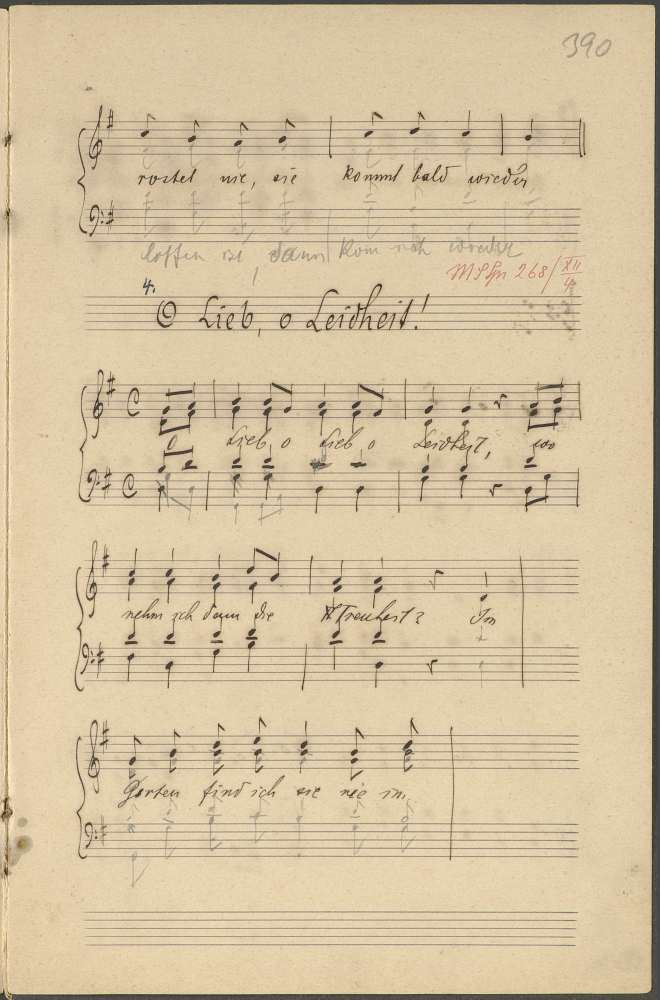 390
rostet nie, sie kommt bald wieder
loffen ist, dann kom noch wieder
268/XII
4.
O Lieb, o Leidheit!
O Lieb, o Lieb, o Leidheit, wo
nehm ich dann die Treuheit? Im
Garten find ich sie nie im